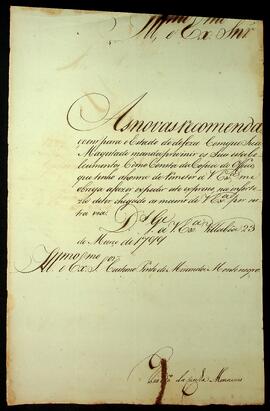 Ill.mo e Ex.mo Snr
As novas recomenda
coens para o Estado de defeza Com que Sua
Magestade manda prevenir os Seus estabe
lecimentos Como Consta da Copia do Officio
que tenho a honra de remeter a V. Ex.ª me
obriga a fazer expedir este expreso na
de ter chegado a maons de V. Ex.ª por
outra via.
D.s G.e a V. Ex.ª Villa bela 23
de Março de 1799
Ill.mo e Ex.mo S.r Caetano Pinto de Miranda Montenegro
da Menezes